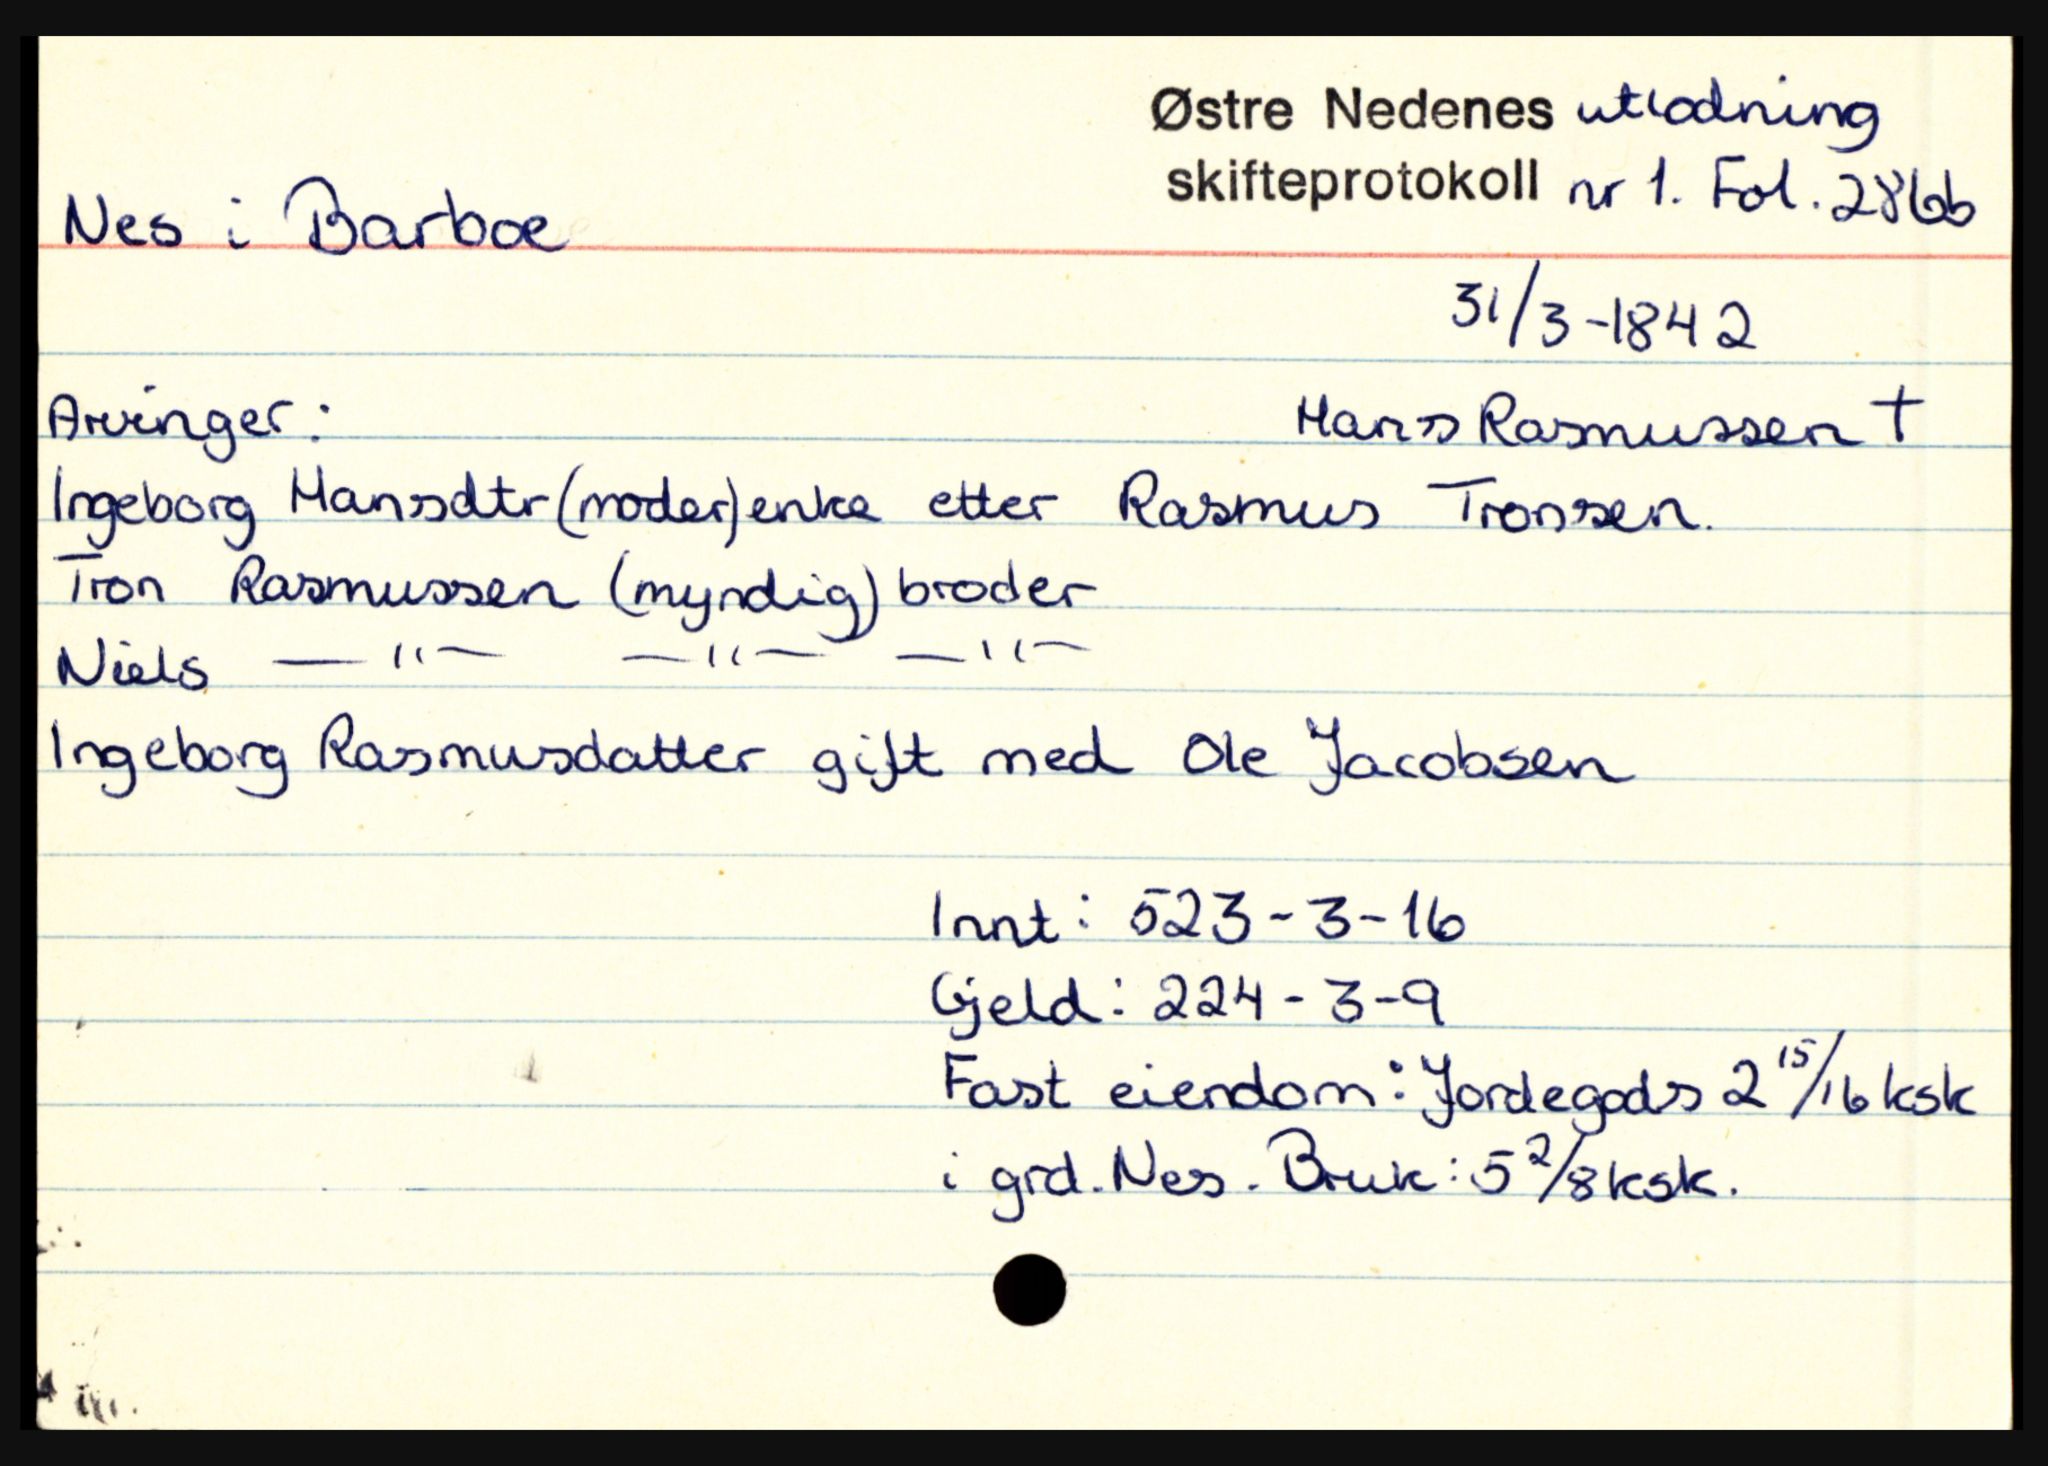 Østre Nedenes utlodning
skifteprotokoll nr 1. Fol. 286b
Nes i Barboe
31/3-1842
Arvinger:
Hans Rasmussen †
Ingeborg Hansdtr (moder) enke etter Rasmus Tronsen.
Tron Rasmussen (myndig) broder
Niels —"— —"— —"—
Ingeborg Rasmusdatter gift med Ole Jacobsen
Innt: 523-3-16
Gjeld: 224-3-9
Fast eiendom: Jordegods 2 15/16 ksk
i grd. Nes. Bruk: 5 2/8 ksk.